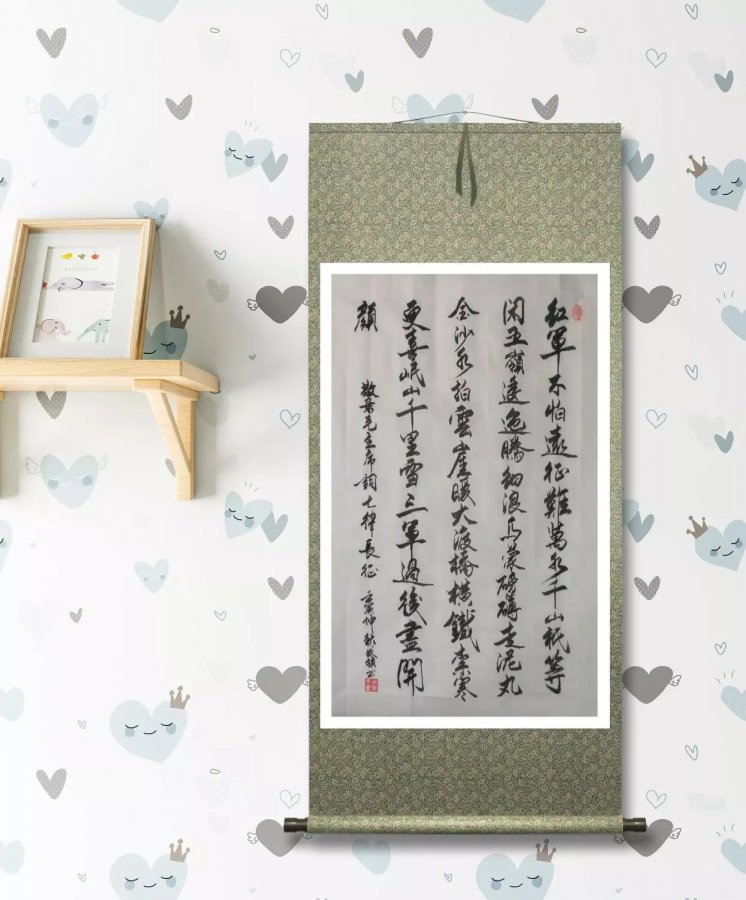 ELEPHANT
紅軍不怕遠征難萬水千山祇等
閑五嶺逶迤騰細浪烏蒙磅礴走泥丸
金沙水拍雲崖暖大渡橋橫鐵索寒
更喜岷山千里雪三軍過後盡開
顏
敬录毛主席詞七律長征 仲秋